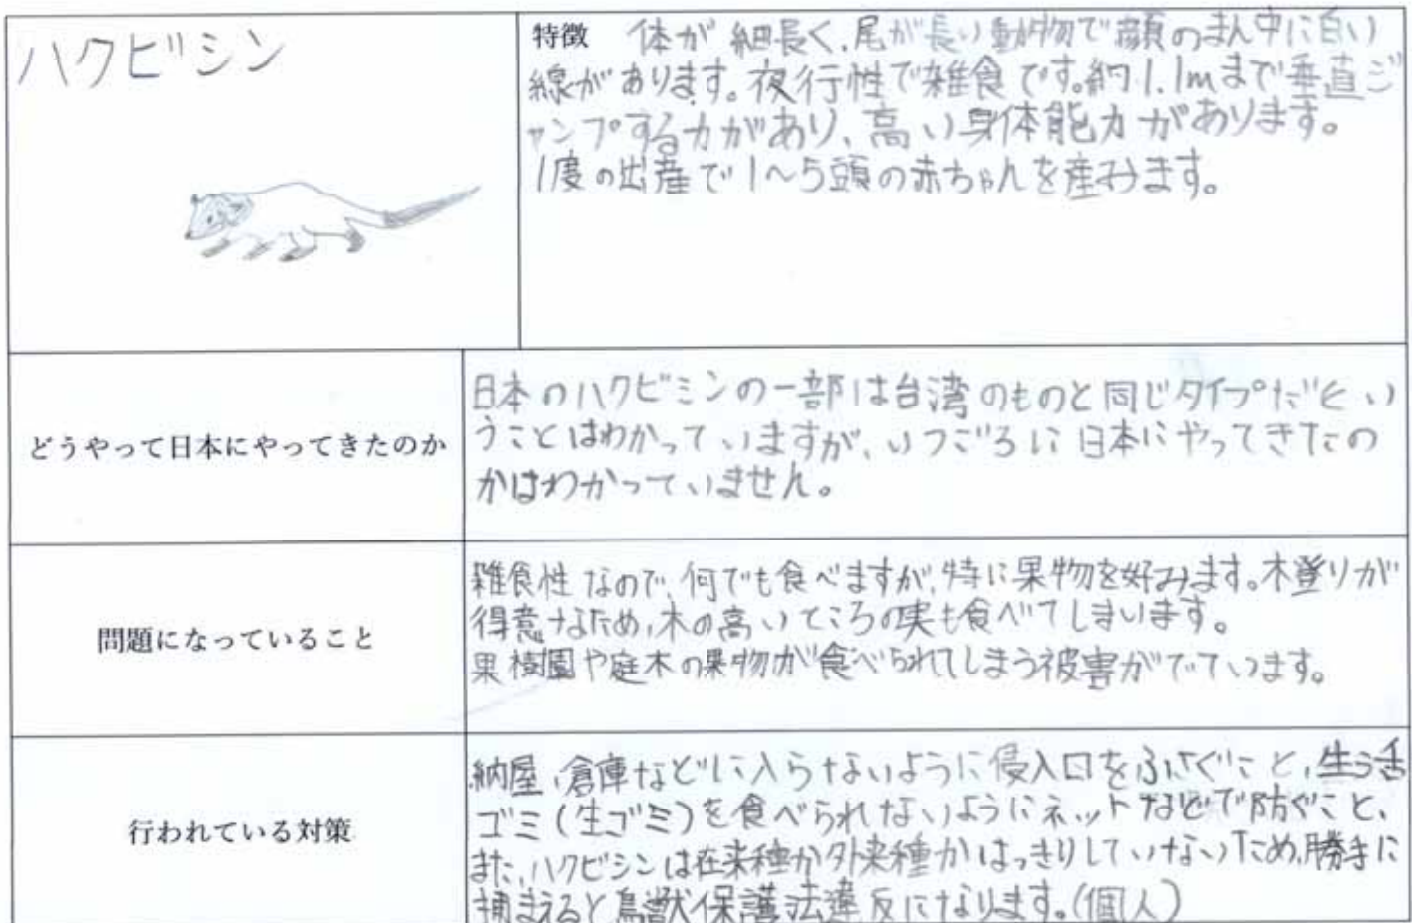 ハクビシン
特徴 体が細長く、尾が長い動物で顔のまん中に白い
線があります。夜行性で雑食です。約1.1mまで垂直ジ
ャンプする力があり、高い身体能力があります。
1度の出産で1〜5頭の赤ちゃんを産みます。
どうやって日本にやってきたのか
日本のハクビミンの一部は台湾のものと同じタイプだとい
うことはわかっていますが、いつごろに日本にやってきたの
かはわかっていません。
問題になっていること
雑食性なので、何でも食べますが、特に果物を好みます。木登りが
得意なため、木の高いところの実も食べてしまいます。
果樹園や庭木の果物が食べられてしまう被害がでています。
行われている対策
納屋、倉庫などに入らないように侵入口をふさぐこと、生活
ゴミ(生ゴミ)を食べられないようにネットなどで防ぐこと、
また、ハクビシンは在来種か外来種かはっきりしていないため、勝手に
捕まえると鳥獣保護法違反になります。(個人)